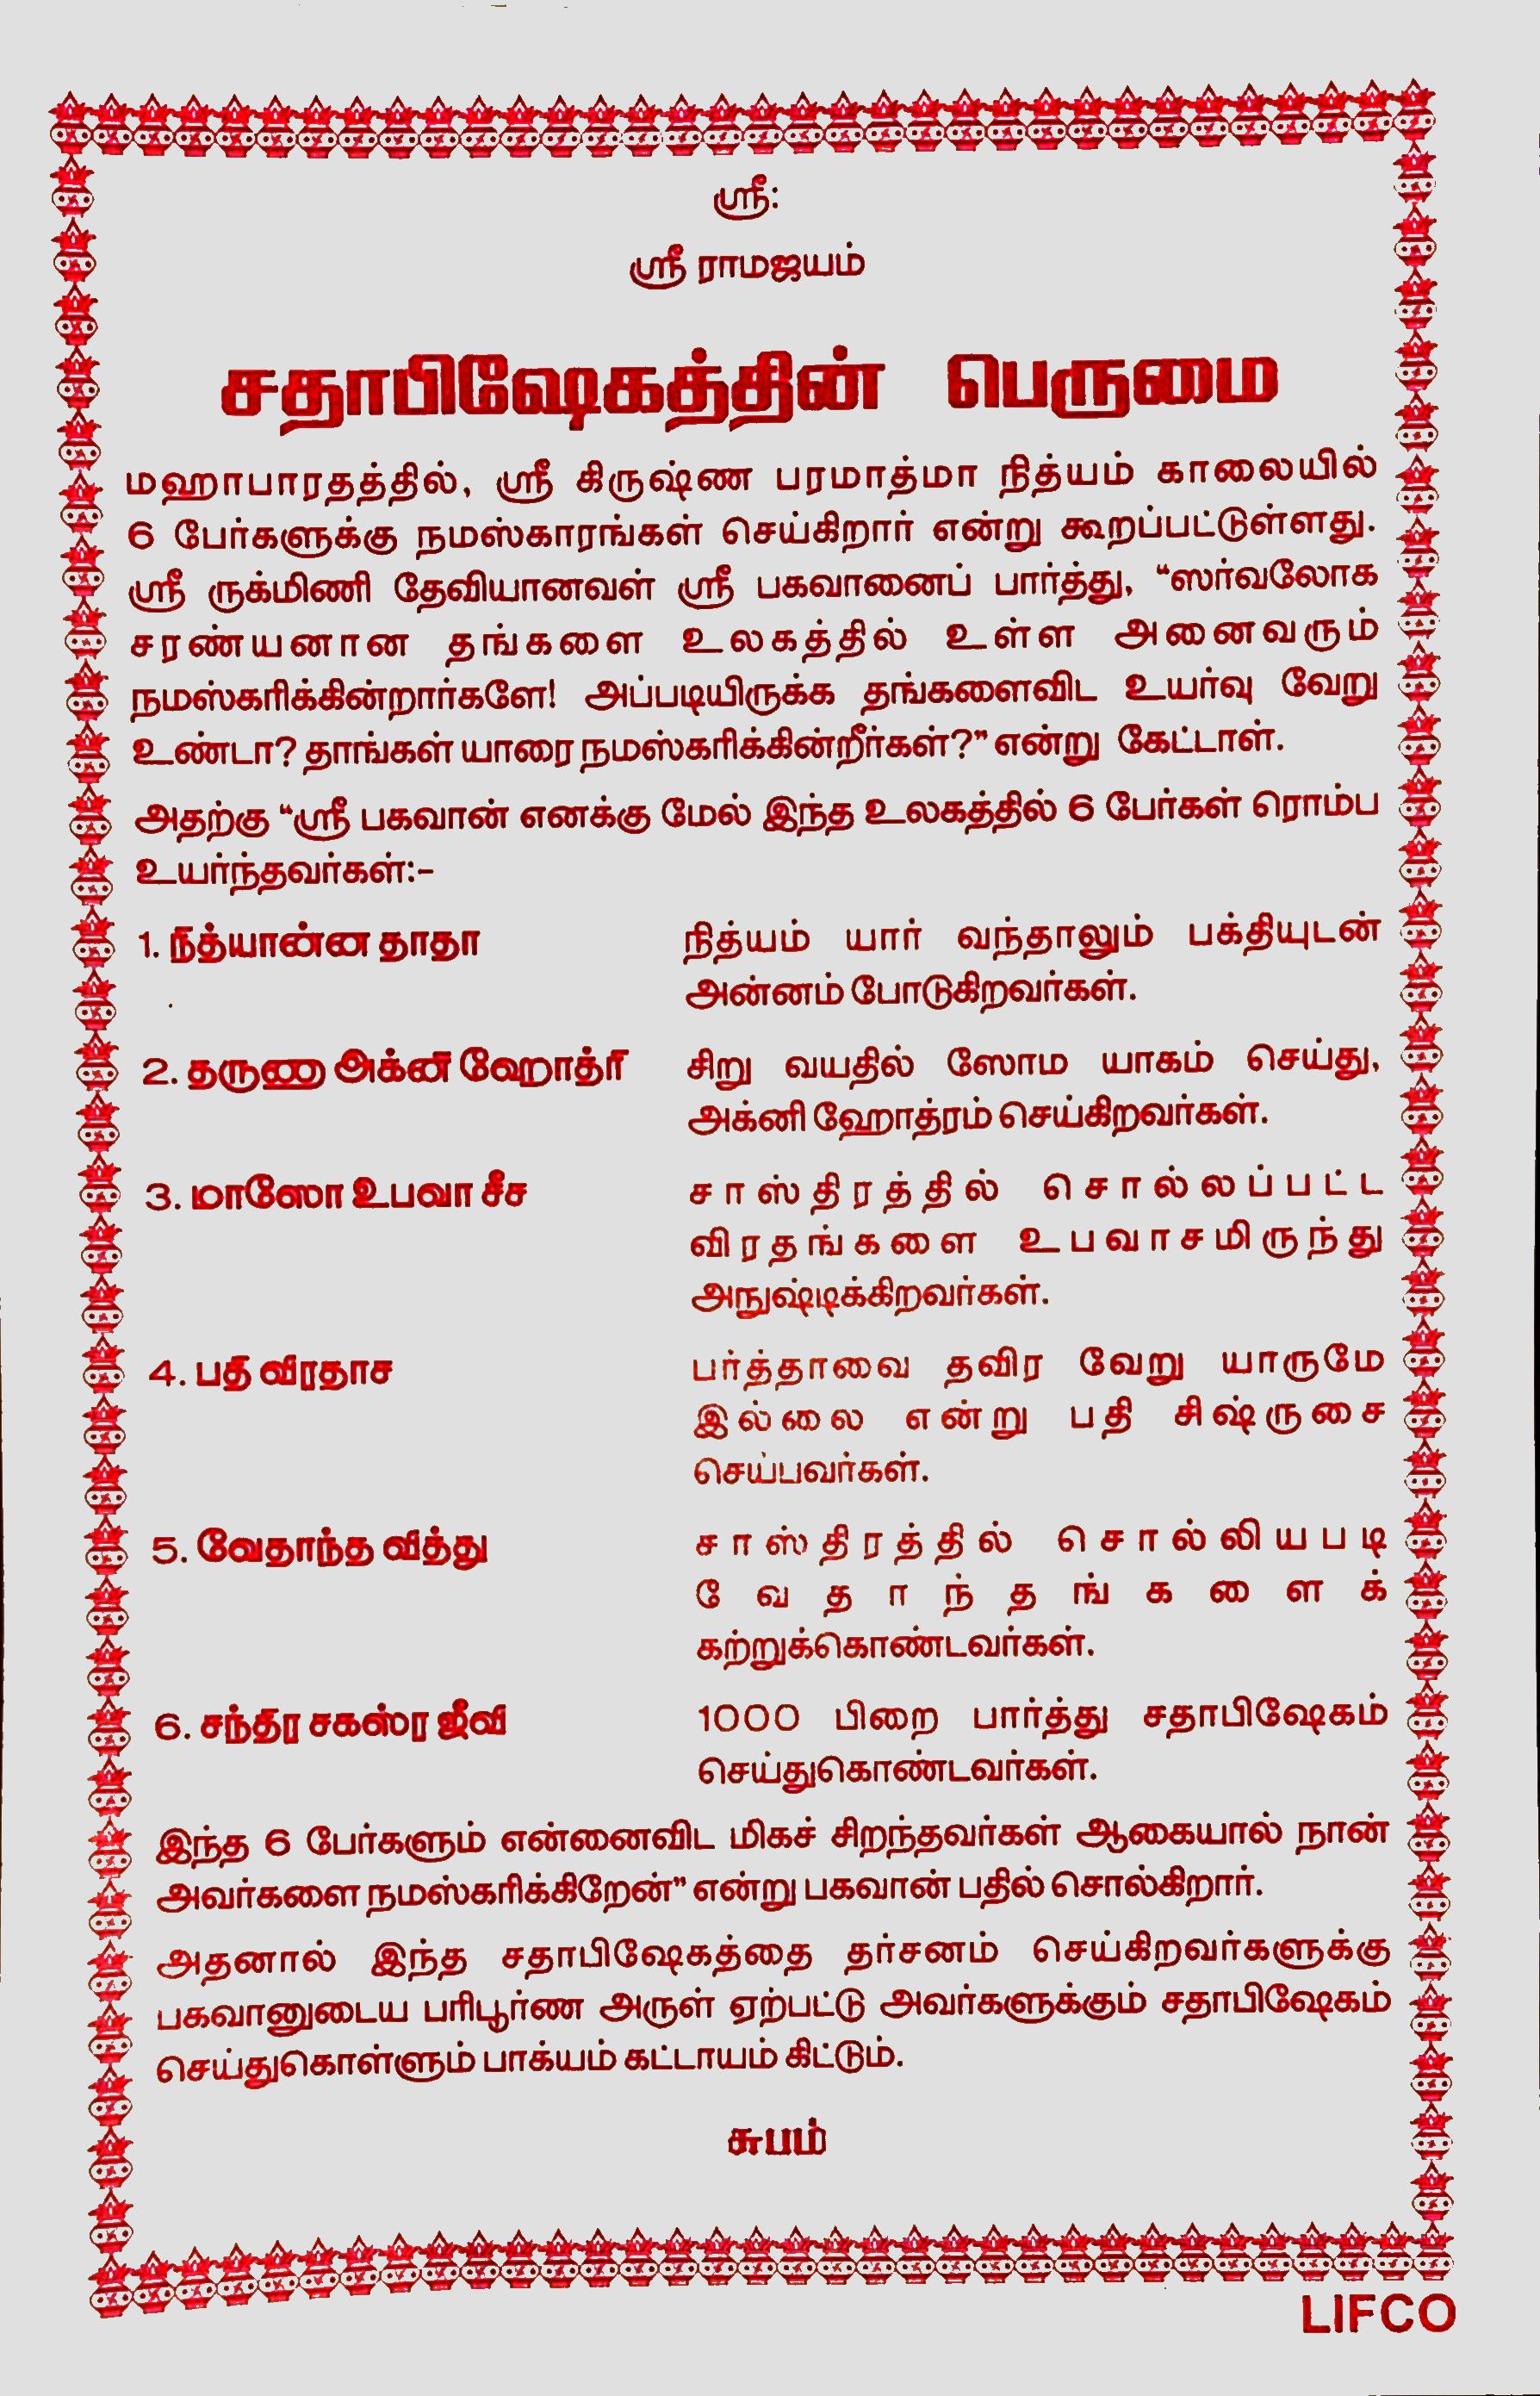 ஸ்ரீ:
ஸ்ரீ ராமஜயம்
சதாபிஷேகத்தின் பெருமை
மஹாபாரதத்தில், ஸ்ரீ கிருஷ்ண பரமாத்மா நித்யம் காலையில்
6 பேர்களுக்கு நமஸ்காரங்கள் செய்கிறார் என்று கூறப்பட்டுள்ளது.
ஸ்ரீ ருக்மிணி தேவியானவள் ஸ்ரீ பகவானைப் பார்த்து, “ஸர்வலோக
சரண்யனான தங்களை உலகத்தில் உள்ள அனைவரும்
நமஸ்கரிக்கின்றார்களே! அப்படியிருக்க தங்களைவிட உயர்வு வேறு
உண்டா? தாங்கள் யாரை நமஸ்கரிக்கின்றீர்கள்?” என்று கேட்டாள்.
அதற்கு “ஸ்ரீ பகவான் எனக்கு மேல் இந்த உலகத்தில் 6 பேர்கள் ரொம்ப
உயர்ந்தவர்கள்:-
1. நித்யான்ன தாதா நித்யம் யார் வந்தாலும் பக்தியுடன்
அன்னம் போடுகிறவர்கள்.
2. தருண அக்னி ஹோத்ரி சிறு வயதில் ஸோம யாகம் செய்து,
அக்னி ஹோத்ரம் செய்கிறவர்கள்.
3. மாஸோ உபவா சீச சாஸ்திரத்தில் சொல்லப்பட்ட
விரதங்களை உபவாசமிருந்து
அநுஷ்டிக்கிறவர்கள்.
4. பதி விரதாச பர்த்தாவை தவிர வேறு யாருமே
இல்லை என்று பதி சிஷ்ருசை
செய்பவர்கள்.
5. வேதாந்த வித்து சாஸ்திரத்தில் சொல்லியபடி
வேதாந்தங்களைக்
கற்றுக்கொண்டவர்கள்.
6. சந்திர சகஸ்ர ஜீவி 1000 பிறை பார்த்து சதாபிஷேகம்
செய்துகொண்டவர்கள்.
இந்த 6 பேர்களும் என்னைவிட மிகச் சிறந்தவர்கள் ஆகையால் நான்
அவர்களை நமஸ்கரிக்கிறேன்” என்று பகவான் பதில் சொல்கிறார்.
அதனால் இந்த சதாபிஷேகத்தை தர்சனம் செய்கிறவர்களுக்கு
பகவானுடைய பரிபூர்ண அருள் ஏற்பட்டு அவர்களுக்கும் சதாபிஷேகம்
செய்துகொள்ளும் பாக்யம் கட்டாயம் கிட்டும்.
சுபம்
LIFCO